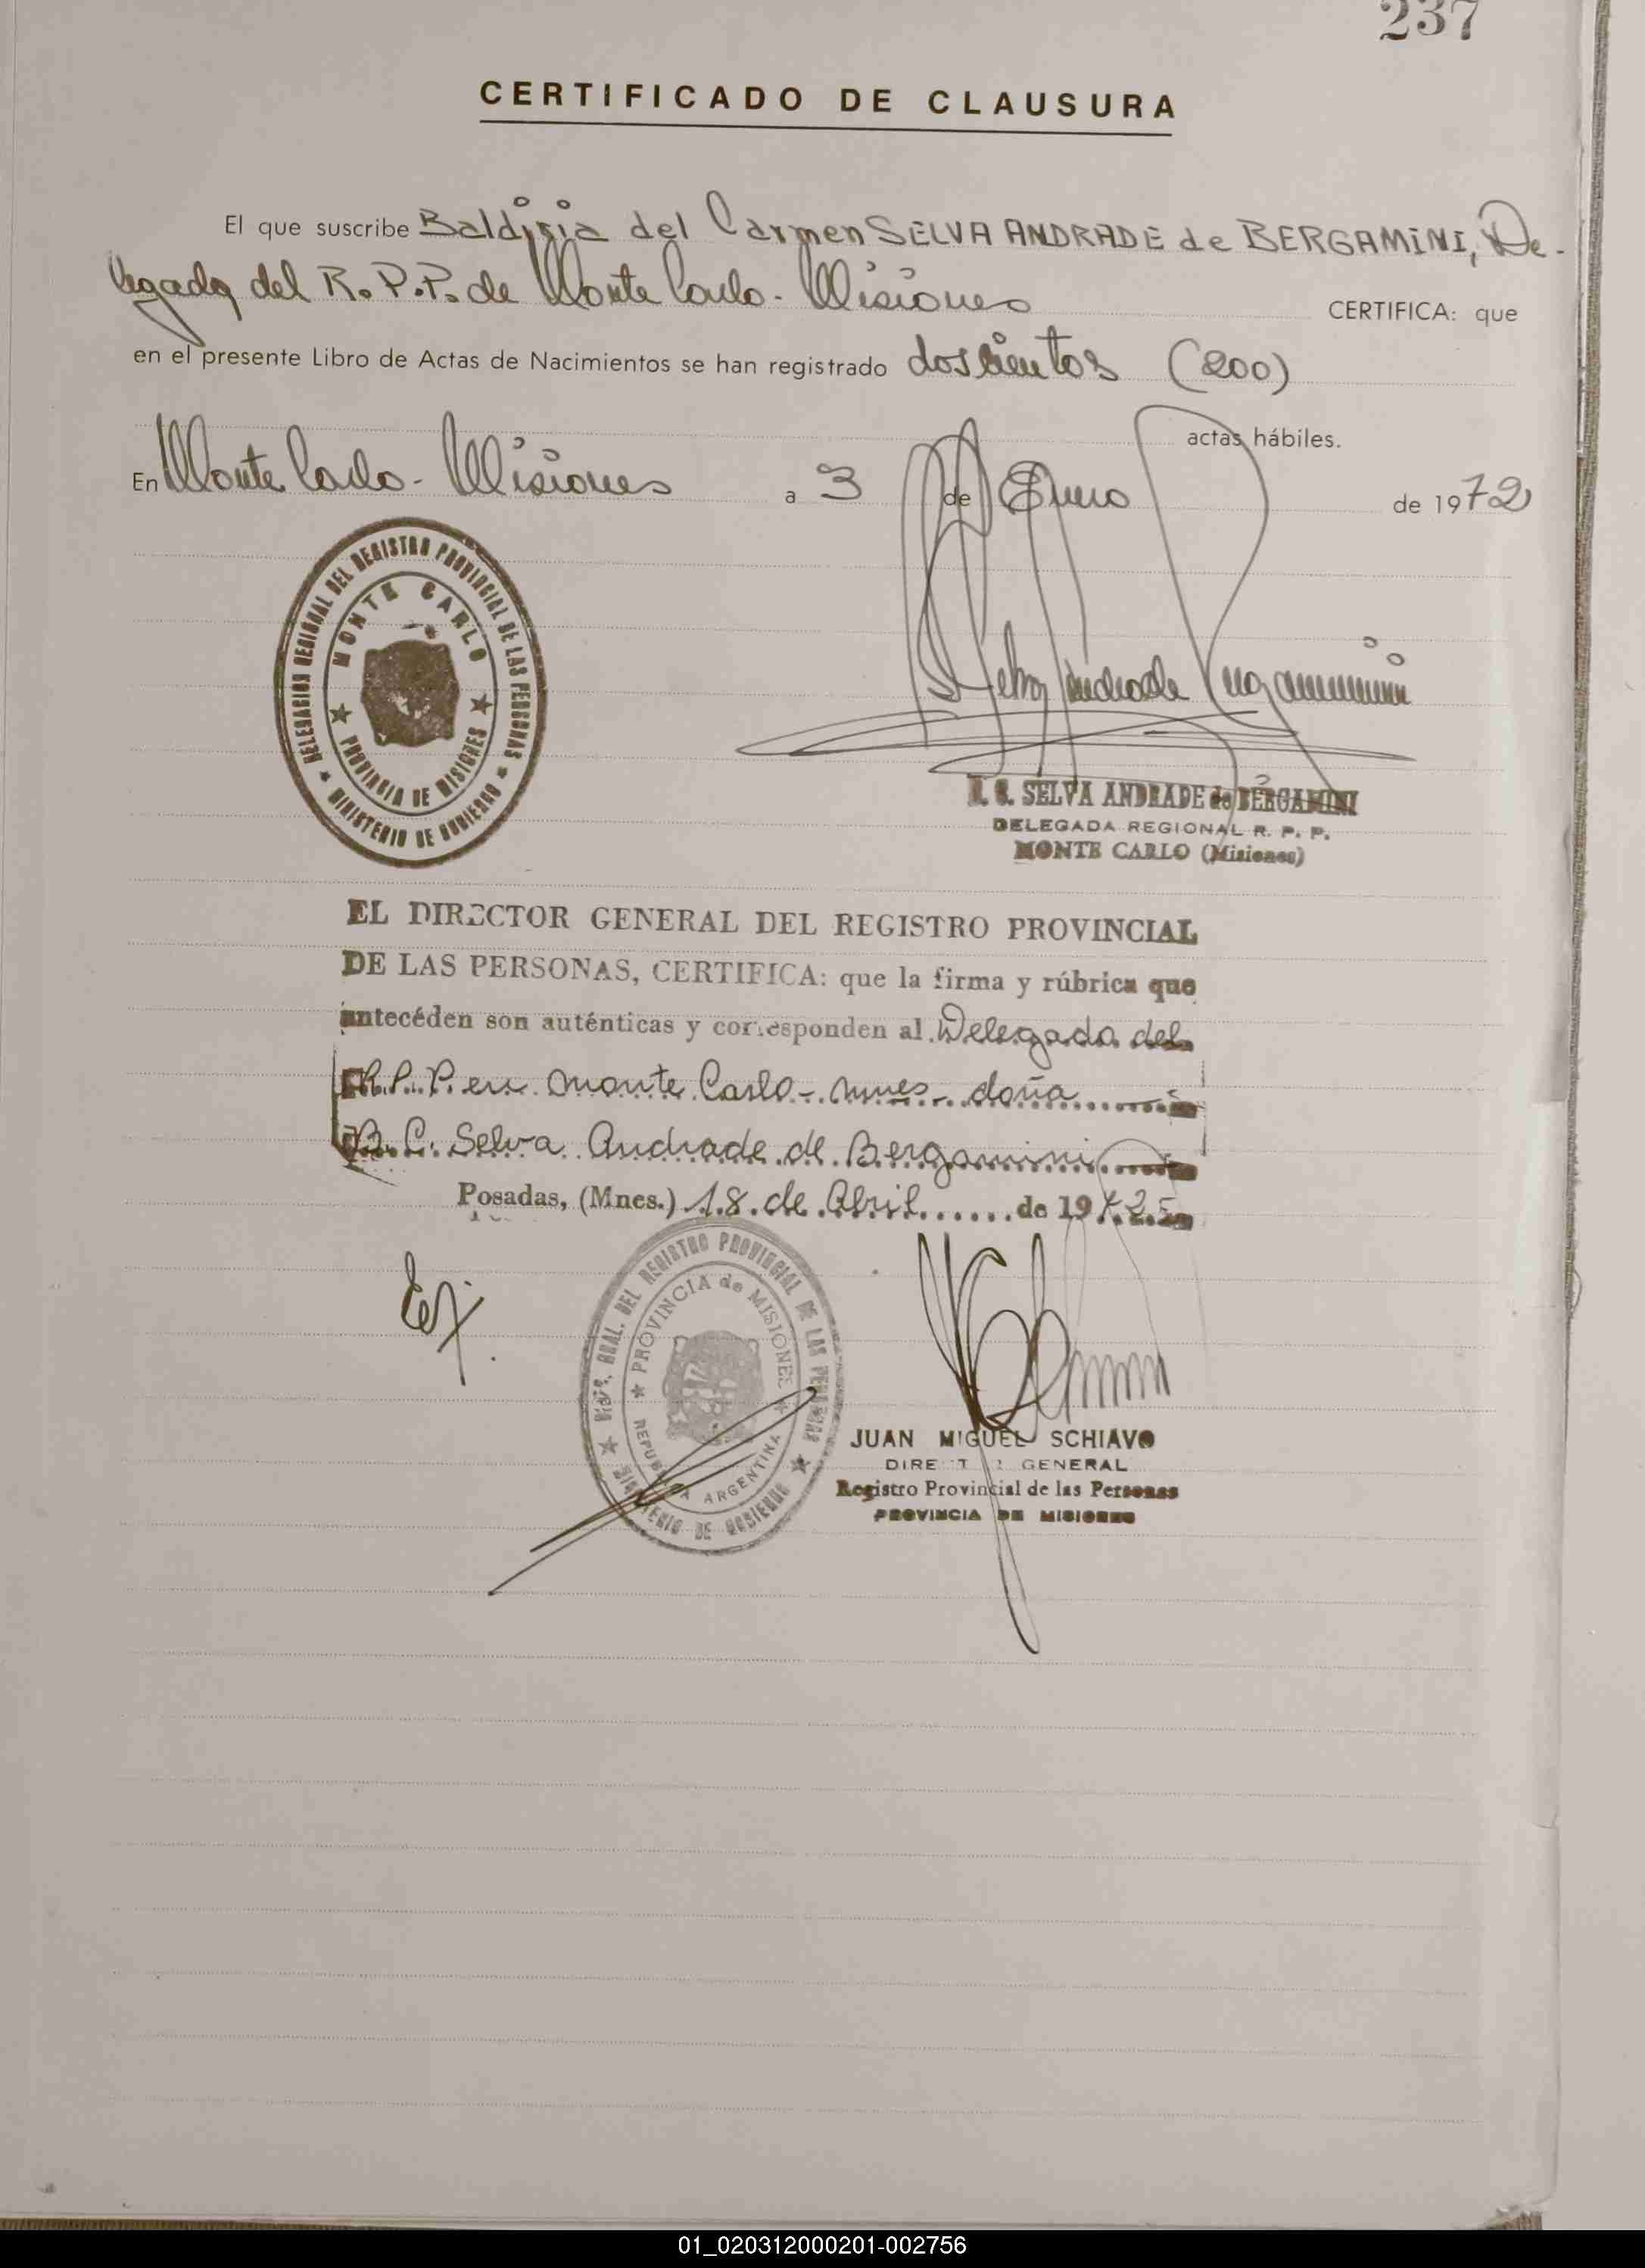 237
CERTIFICADO DE CLAUSURA
El que suscribe Baldisia del Carmen SELVA ANDRADE de BERGAMINI, De-
legada del R.P.P. de Monte Carlo - Misiones CERTIFICA: que
en el presente Libro de Actas de Nacimientos se han registrado doscientos (200)
actas hábiles.
En Monte Carlo - Misiones a 3 de Enero de 1972
DELEGACION REGIONAL DEL REGISTRO PROVINCIAL DE LAS PERSONAS
MONTE CARLO
PROVINCIA DE MISIONES
MINISTERIO DE GOBIERNO
SELVA ANDRADE de BERGAMINI
DELEGADA REGIONAL R. P. P.
MONTE CARLO (Misiones)
EL DIRECTOR GENERAL DEL REGISTRO PROVINCIAL
DE LAS PERSONAS, CERTIFICA: que la firma y rúbrica que
antecéden son auténticas y corresponden al Delegada del
R.P.P. en Monte Carlo - Mnes - doña
B.C. Selva Andrade de Bergamini
Posadas, (Mnes.) 18 de Abril de 1972
DIREC. GRAL. DEL REGISTRO PROVINCIAL DE LAS PERSONAS
PROVINCIA de MISIONES
REPUBLICA ARGENTINA
MINISTERIO DE GOBIERNO
JUAN MIGUEL SCHIAVO
DIRECTOR GENERAL
Registro Provincial de las Personas
PROVINCIA DE MISIONES
01_020312000201-002756